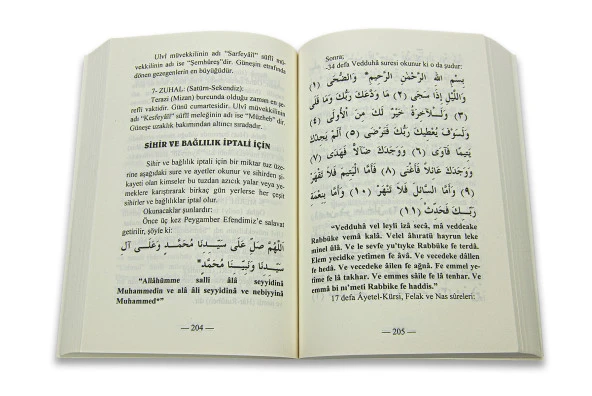 Ulvî müvekkilinin adı "Sarfeyâil" süflî mü-
vekkilinin adı ise "Şemhûreş"dir. Güneşin etrafında
dönen gezegenlerin en büyüğüdür.
7- ZUHAL: (Satürn-Sekendiz):
Terazi (Mizan) burcunda olduğu zaman en şe-
refli vaktidir. Günü cumartesidir. Ulvî müvekkilinin
adı "Kesfeyâil" süflî meleğinin adı ise "Müzheb" dir.
Güneşe uzaklık bakımından altıncı sıradadır.
SİHİR VE BAĞLILIK İPTALİ İÇİN
Sihir ve bağlılık iptali için bir miktar tuz üze-
rine aşağıdaki sure ve ayetler okunur ve sihirden şi-
kayeti olan kimseler bu tuzdan azıcık yalar veya ye-
meklere karıştırarak birkaç gün yerlerse her çeşit
sihirler ve bağlılıklar iptal olur.
Okunacaklar şunlardır:
Önce üç kez Peygamber Efendimiz'e salavat
getirilir, şöyle ki:
اَللّٰهُمَّ صَلِّ عَلٰى سَيِّدِنَا مُحَمَّدٍ وَعَلٰى آلِ
سَيِّدِنَا وَنَبِيِّنَا مُحَمَّدٍ*
"Allâhümme salli âlâ seyyidinâ
Muhammedin ve alâ âli seyyidinâ ve nebiyyinâ
Muhammed*"
— 204 —
Sonra;
-34 defa Vedduhâ suresi okunur ki o da şudur:
بِسْمِ اللّٰهِ الرَّحْمٰنِ الرَّحِيمِ* وَالضُّحٰى (١)
وَاللَّيْلِ إِذَا سَجٰى (٢) مَا وَدَّعَكَ رَبُّكَ وَمَا قَلٰى
(٣) وَلَلْاٰخِرَةُ خَيْرٌ لَكَ مِنَ الْاُولٰى (٤)
وَلَسَوْفَ يُعْطِيكَ رَبُّكَ فَتَرْضٰى (٥) اَلَمْ يَجِدْكَ
يَتِيمًا فَاٰوٰى (٦) وَوَجَدَكَ ضَالًّا فَهَدٰى (٧)
وَوَجَدَكَ عَائِلًا فَاَغْنٰى (٨) فَاَمَّا الْيَتِيمَ فَلَا تَقْهَرْ
(٩) وَاَمَّا السَّائِلَ فَلَا تَنْهَرْ (١٠) وَاَمَّا بِنِعْمَةِ
رَبِّكَ فَحَدِّثْ (١١)
"Vedduhâ vel leyli izâ secâ, mâ veddeake
Rabbüke vemâ kalâ. Velel âhıratü hayrun leke
minel ûlâ. Ve le sevfe yu'tıyke Rabbüke fe terdâ.
Elem yecidke yetîmen fe âvâ. Ve vecedeke dâllen
fe hedâ. Ve vecedeke âilen fe ağnâ. Fe emmel ye-
tîme fe lâ takhar. Ve emmes sâile fe lâ tenhar. Ve
emmâ bi nı'meti Rabbike fe haddis."
17 defa Âyetel-Kürsi, Felak ve Nas sûreleri;
— 205 —